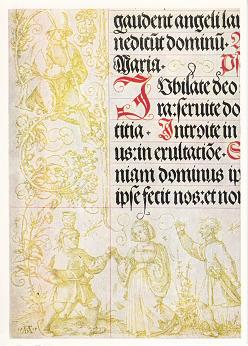 gaudent angeli lau
nedicũt dominũ.
Maria. Ps
IVbilate deo
ra: seruite do
titia. Introite in
us: in exultatiõe. S
niam dominus ip
ipse fecit nos: et no